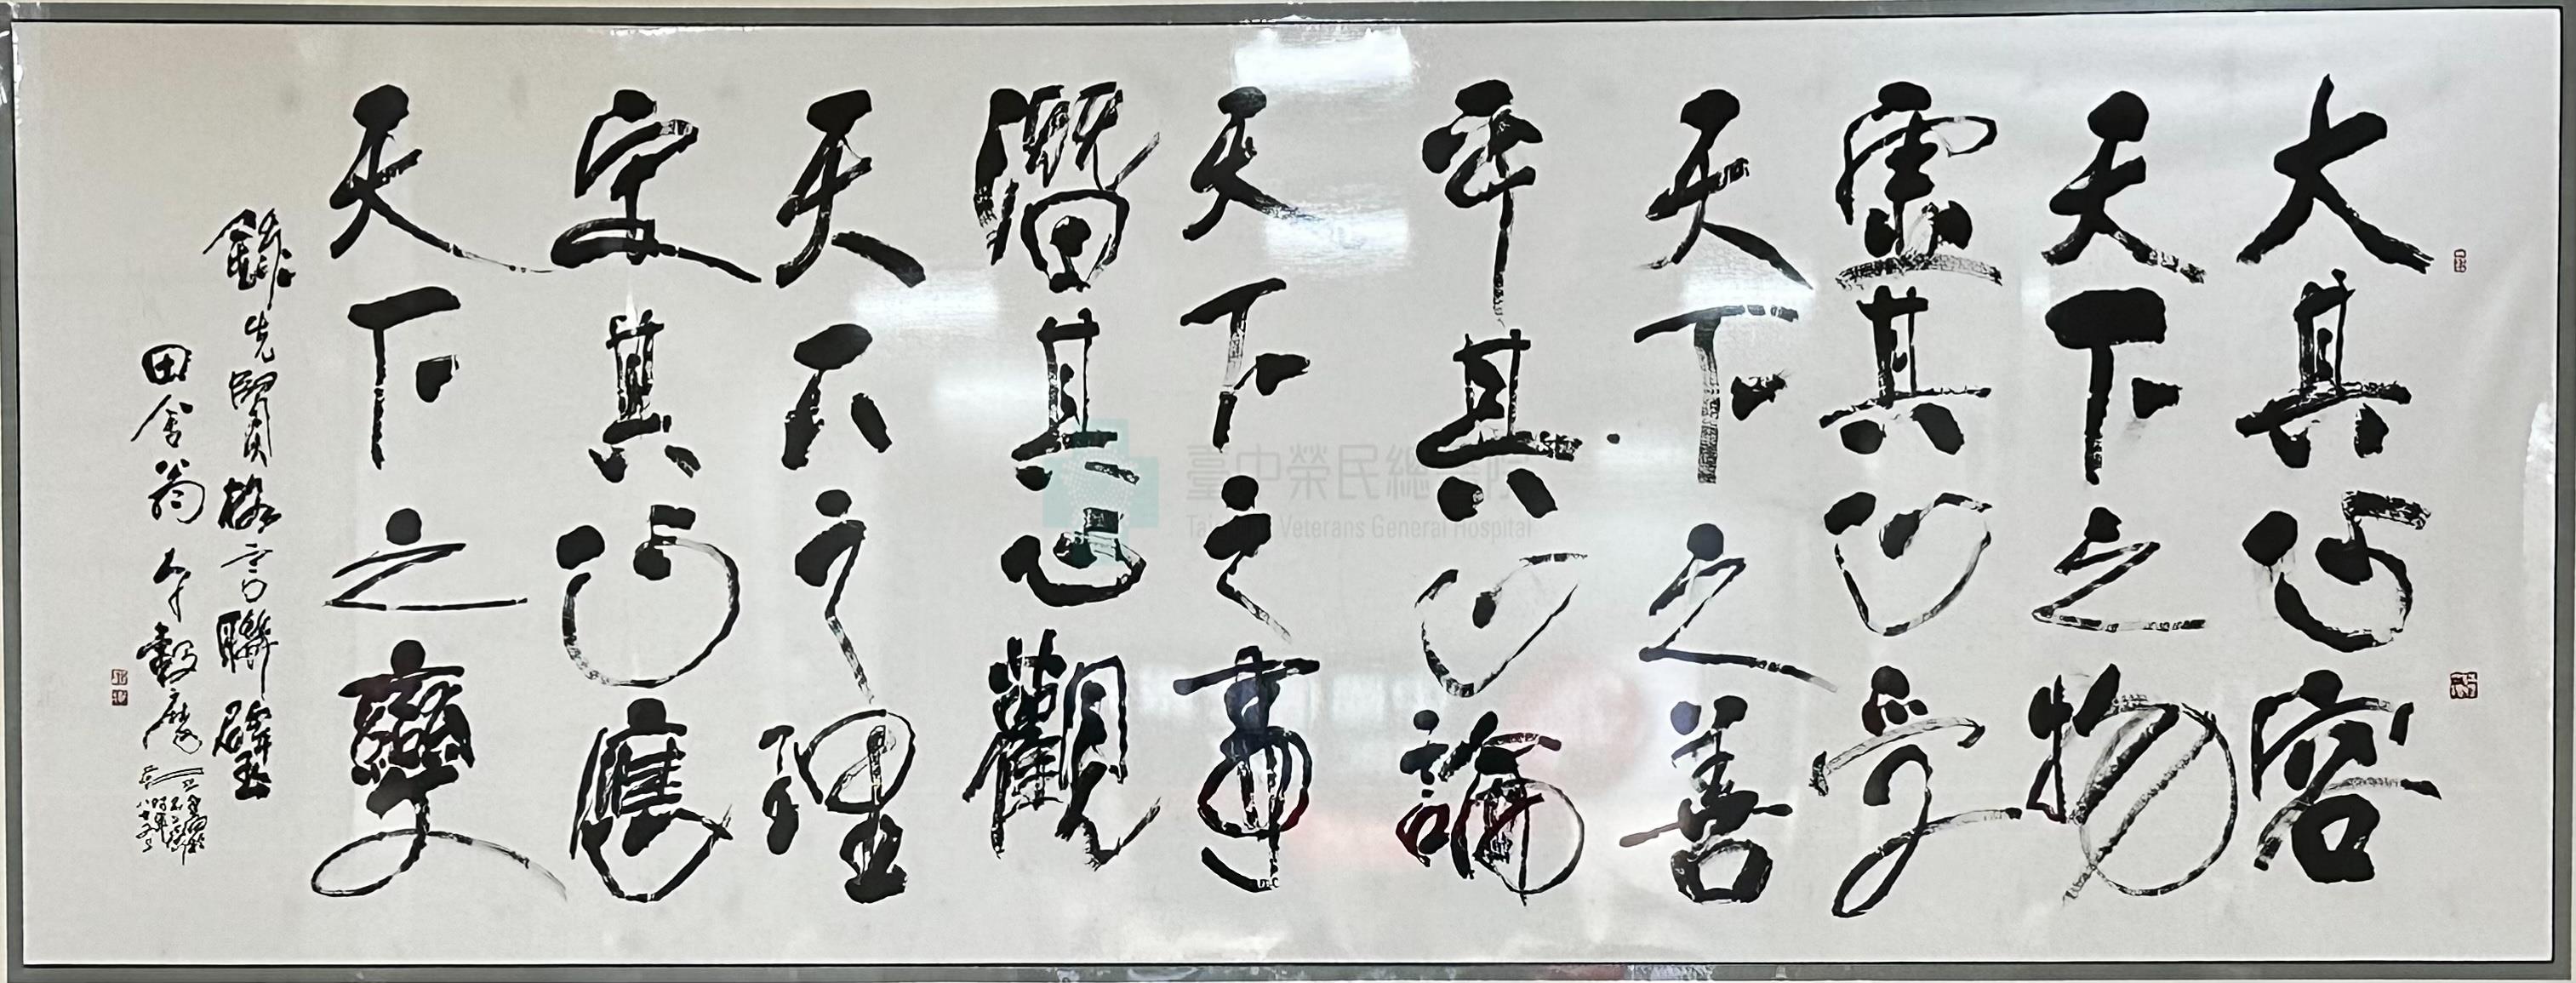 大其心容
天下之物
虛其心受
天下之善
平其心論
天下之事
潛其心觀
天下之理
定其心應
天下之變
錄先賢格言聯璧
田舍翁
臺中榮民總醫院
Taichung Veterans General Hospital